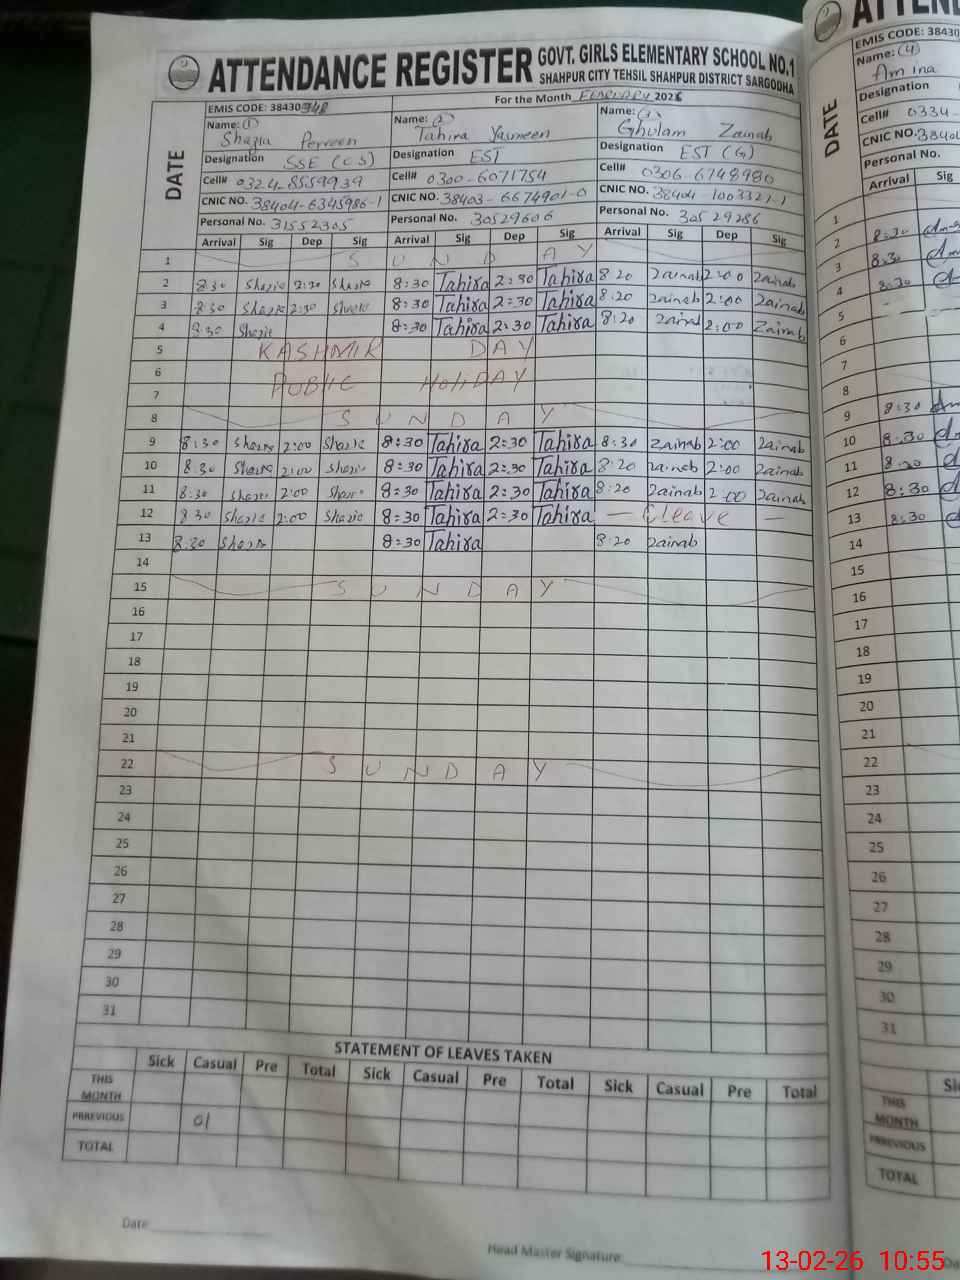 ATTENDANCE REGISTER GOVT. GIRLS ELEMENTARY SCHOOL NO.1
SHAHPUR CITY TEHSIL SHAHPUR DISTRICT SARGODHA
EMIS CODE: 38430348 For the Month February 2026
DATE
Name: (1) Shazia Perveen Name: (2) Tahira Yasmeen Name: (3) Ghulam Zainab
Designation SSE (CS) Designation EST Designation EST (G)
Cell# 0324-8559939 Cell# 0300-6071754 Cell# 0306-6748980
CNIC NO. 38404-6345986-1 CNIC NO. 38403-6674901-0 CNIC NO. 38404-1003321-1
Personal No. 31552305 Personal No. 30529606 Personal No. 30529286
Arrival Sig Dep Sig Arrival Sig Dep Sig Arrival Sig Dep Sig
1 SUNDAY
2 8:30 Shazia 2:30 Shazia 8:30 Tahira 2:30 Tahira 8:20 Zainab 2:00 Zainab
3 8:30 Shazia 2:30 Shazia 8:30 Tahira 2:30 Tahira 8:20 Zainab 2:00 Zainab
4 8:30 Shazia 8:30 Tahira 2:30 Tahira 8:20 Zainab 2:00 Zainab
5 KASHMIR DAY
6
7 PUBLIC HoliDAY
8 SUNDAY
9 8:30 Shazia 2:00 Shazia 8:30 Tahira 2:30 Tahira 8:30 Zainab 2:00 Zainab
10 8:30 Shazia 2:00 Shazia 8:30 Tahira 2:30 Tahira 8:20 Zainab 2:00 Zainab
11 8:30 Shazia 2:00 Shazia 8:30 Tahira 2:30 Tahira 8:20 Zainab 2:00 Zainab
12 8:30 Shazia 2:00 Shazia 8:30 Tahira 2:30 Tahira — Cleave —
13 8:30 Shazia 8:30 Tahira 8:20 Zainab
14
15 SUNDAY
16
17
18
19
20
21
22 SUNDAY
23
24
25
26
27
28
29
30
31
STATEMENT OF LEAVES TAKEN
Sick Casual Pre Total Sick Casual Pre Total Sick Casual Pre Total
THIS MONTH
PRREVIOUS 01
TOTAL
Date
Head Master Signature
EMIS CODE: 38430
Name: (4)
Amina
Designation
DATE
Cell# 0334-
CNIC NO.
Personal No.
Arrival Sig
1
2 8:30
3 8:30
4 8:30
5
6
7
8
9 8:30
10 8:30
11 8:20
12 8:30
13 8:30
14
15
16
17
18
19
20
21
22
23
24
25
26
27
28
29
30
31
THIS MONTH
PRREVIOUS
TOTAL
13-02-26 10:55